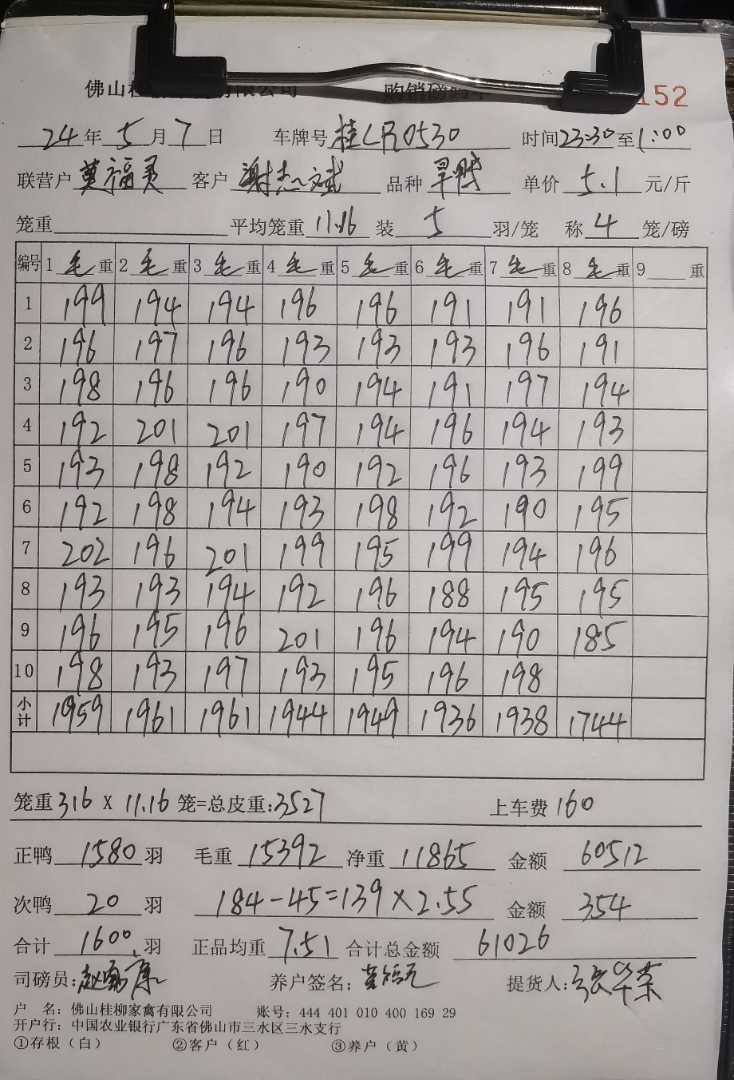 佛山桂 有限公司 购销磅码单 152
24年5月7日 车牌号 桂LR0530 时间23:30至1:00
联营户 莫福灵 客户 谢志斌 品种 旱鸭 单价 5.1 元/斤
笼重 平均笼重 11.16 装 5 羽/笼 称 4 笼/磅
编号 1毛重 2毛重 3毛重 4毛重 5毛重 6毛重 7毛重 8毛重 9 重
1 199 194 194 196 196 191 191 196
2 196 197 196 193 193 193 196 191
3 198 196 196 190 194 191 197 194
4 192 201 201 197 194 196 194 193
5 193 198 192 190 192 196 193 199
6 192 198 194 193 198 192 190 195
7 202 196 201 199 195 199 194 196
8 193 193 194 192 196 188 195 195
9 196 195 196 201 196 194 190 185
10 198 193 197 193 195 196 198
小计 1959 1961 1961 1944 1949 1936 1938 1744
笼重 316 X 11.16 笼=总皮重:3527 上车费 160
正鸭 1580 羽 毛重 15392 净重 11865 金额 60512
次鸭 20 羽 184-45=139×2.55 金额 354
合计 1600 羽 正品均重 7.51 合计总金额 61026
司磅员: 养户签名: 提货人:张华荣
户 名：佛山桂柳家禽有限公司 账号：444 401 010 400 169 29
开户行：中国农业银行广东省佛山市三水区三水支行
①存根（白） ②客户（红） ③养户（黄）